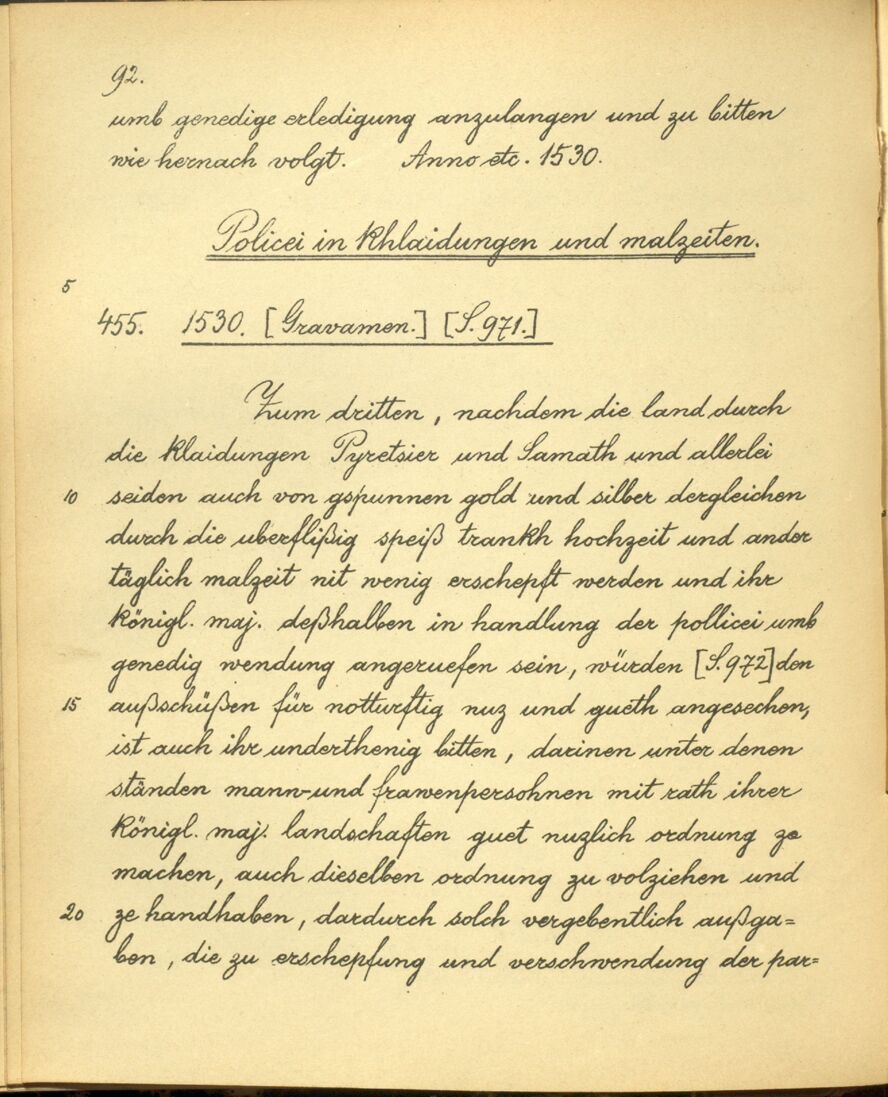 92.
umb genedige erledigung anzulangen und zu bitten
wie hernach volgt. Anno etc. 1530.
Policei in khlaidungen und malzeiten.
5
455. 1530. [Gravamen.] [S. 971.]
Zum dritten, nachdem die land durch
die klaidungen Pyretsier und Samath und allerlei
10 seiden auch von gspunnen gold und silber dergleichen
durch die uberflißig speiß trankh hochzeit und ander
täglich malzeit nit wenig erschepft werden und ihr
königl. maj. deßhalben in handlung der pollicei umb
genedig wendung angeruefen sein, würden [S. 972] den
15 außschüßen für notturftig nuz und gueth angesechen,
ist auch ihr underthenig bitten, darinen unter denen
ständen mann- und frawenpersohnen mit rath ihrer
königl. maj. landschaften guet nuzlich ordnung ze
machen, auch dieselben ordnung zu volziehen und
20 ze handhaben, dardurch solch vergebentlich außga=
ben, die zu erschepfung und verschwendung der par=